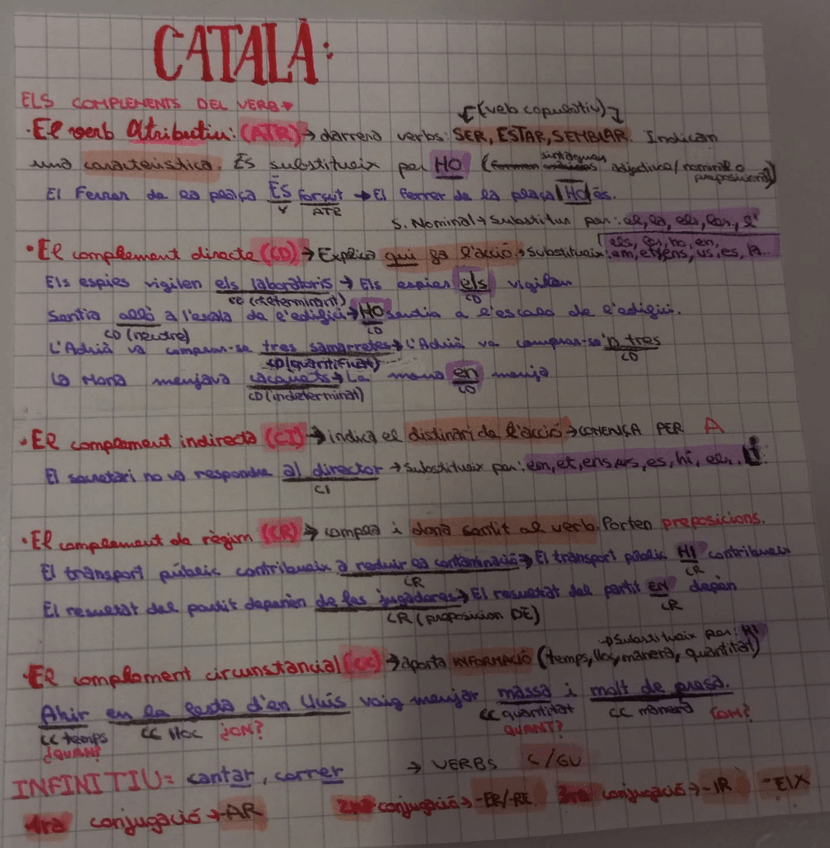 CATALÀ:
ELS COMPLEMENTS DEL VERB
(verb copulatiu)
· El verb Atributiu: (ATR) → darrera verbs: SER, ESTAR, SEMBLAR. Indican
una característica. És substitueix per HO ( sintagmes adjectius/nominal o preposicional)
El Ferrer de la plaça ÉS forçut → El ferrer de la plaça HO és.
V ATR
S. Nominal → Substitus per: el, la, els, les, l'
· El complement directe (CD) → Explica qui fa l'acció → substitueix: em, et, ens, us, es, la..
els, les, ho, en,
Els espies vigilen els laboratoris → Els espies els vigilen
CD (determinant) CD
Sentia allò a l'escala de l'edifici → HO sentia a l'escala de l'edifici.
CD (neutre) CD
L'Adrià va comprar-se tres samarretes → L'Adrià va comprar-se'n tres
CD (quantificat) CD
La Mona menjava cacauets → La mona en menja
CD (indeterminat) CD
· El complement indirecte (CI) → indica el distinari de l'acció → COMENÇA PER A
El secretari no va respondre al director → substitueix per: em, et, ens, us, es, hi, el.. li
CI
· El complement de règim (CR) → completa i dona sentit al verb. Porten preposicions.
El transport públic contribueix a reduir la contaminació → El transport públic HI contribueix
CR CR
El resultat del partit depenien de les jugadores → El resultat del partit en depèn
CR (preposicion DE) CR
→ Substitueix per: HI
· El complement circumstancial (CC) → aporta INFORMACIÓ (temps, lloc, manera, quantitat)
Ahir en la festa d'en Lluís vaig menjar massa i molt de presa.
CC temps CC lloc ¿ON? CC quantitat CC manera COM?
¿QUAN? QUANT?
INFINITIU = cantar, correr → VERBS C/GU
1ra conjugació → -AR 2na conjugació → -ER/-RE 3ra conjugació → -IR -EIX